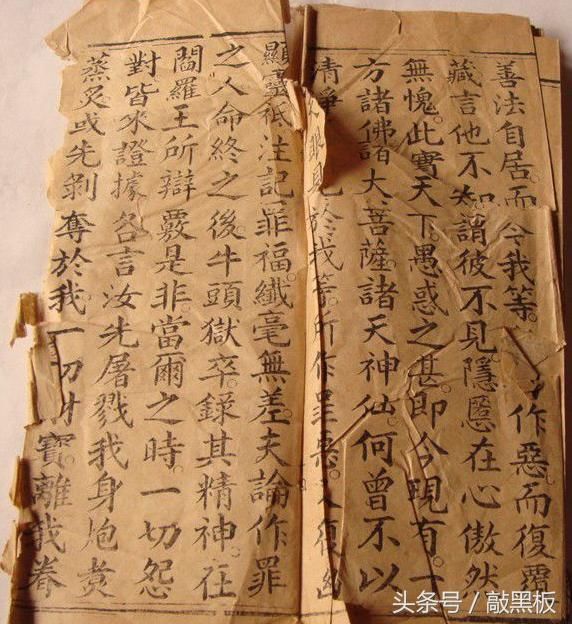 善法自居而令我等。作惡。而復覆
藏言他不知謂彼不見。隱慝在心傲然
無愧。此實天下。愚惑之甚。即今現有。
方諸佛。諸大菩薩。諸天神仙。何曾不以
清淨眼見於我等。所作罪惡。又復幽
顯靈祇注記罪福。纖毫無差。夫論作罪
之人命終之後。牛頭獄卒。錄其精神。在
閻羅王所。辯覈是非。當爾之時。一切怨
對皆來證據。各言汝先屠戮我身炮煮
蒸炙或先剝奪於我。一切財寶離我眷
头条号/敲黑板